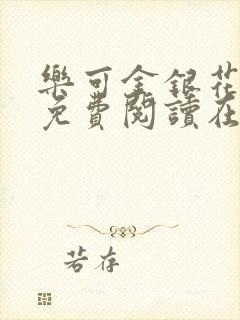 樂可金銀花
免費閱讀在
若存